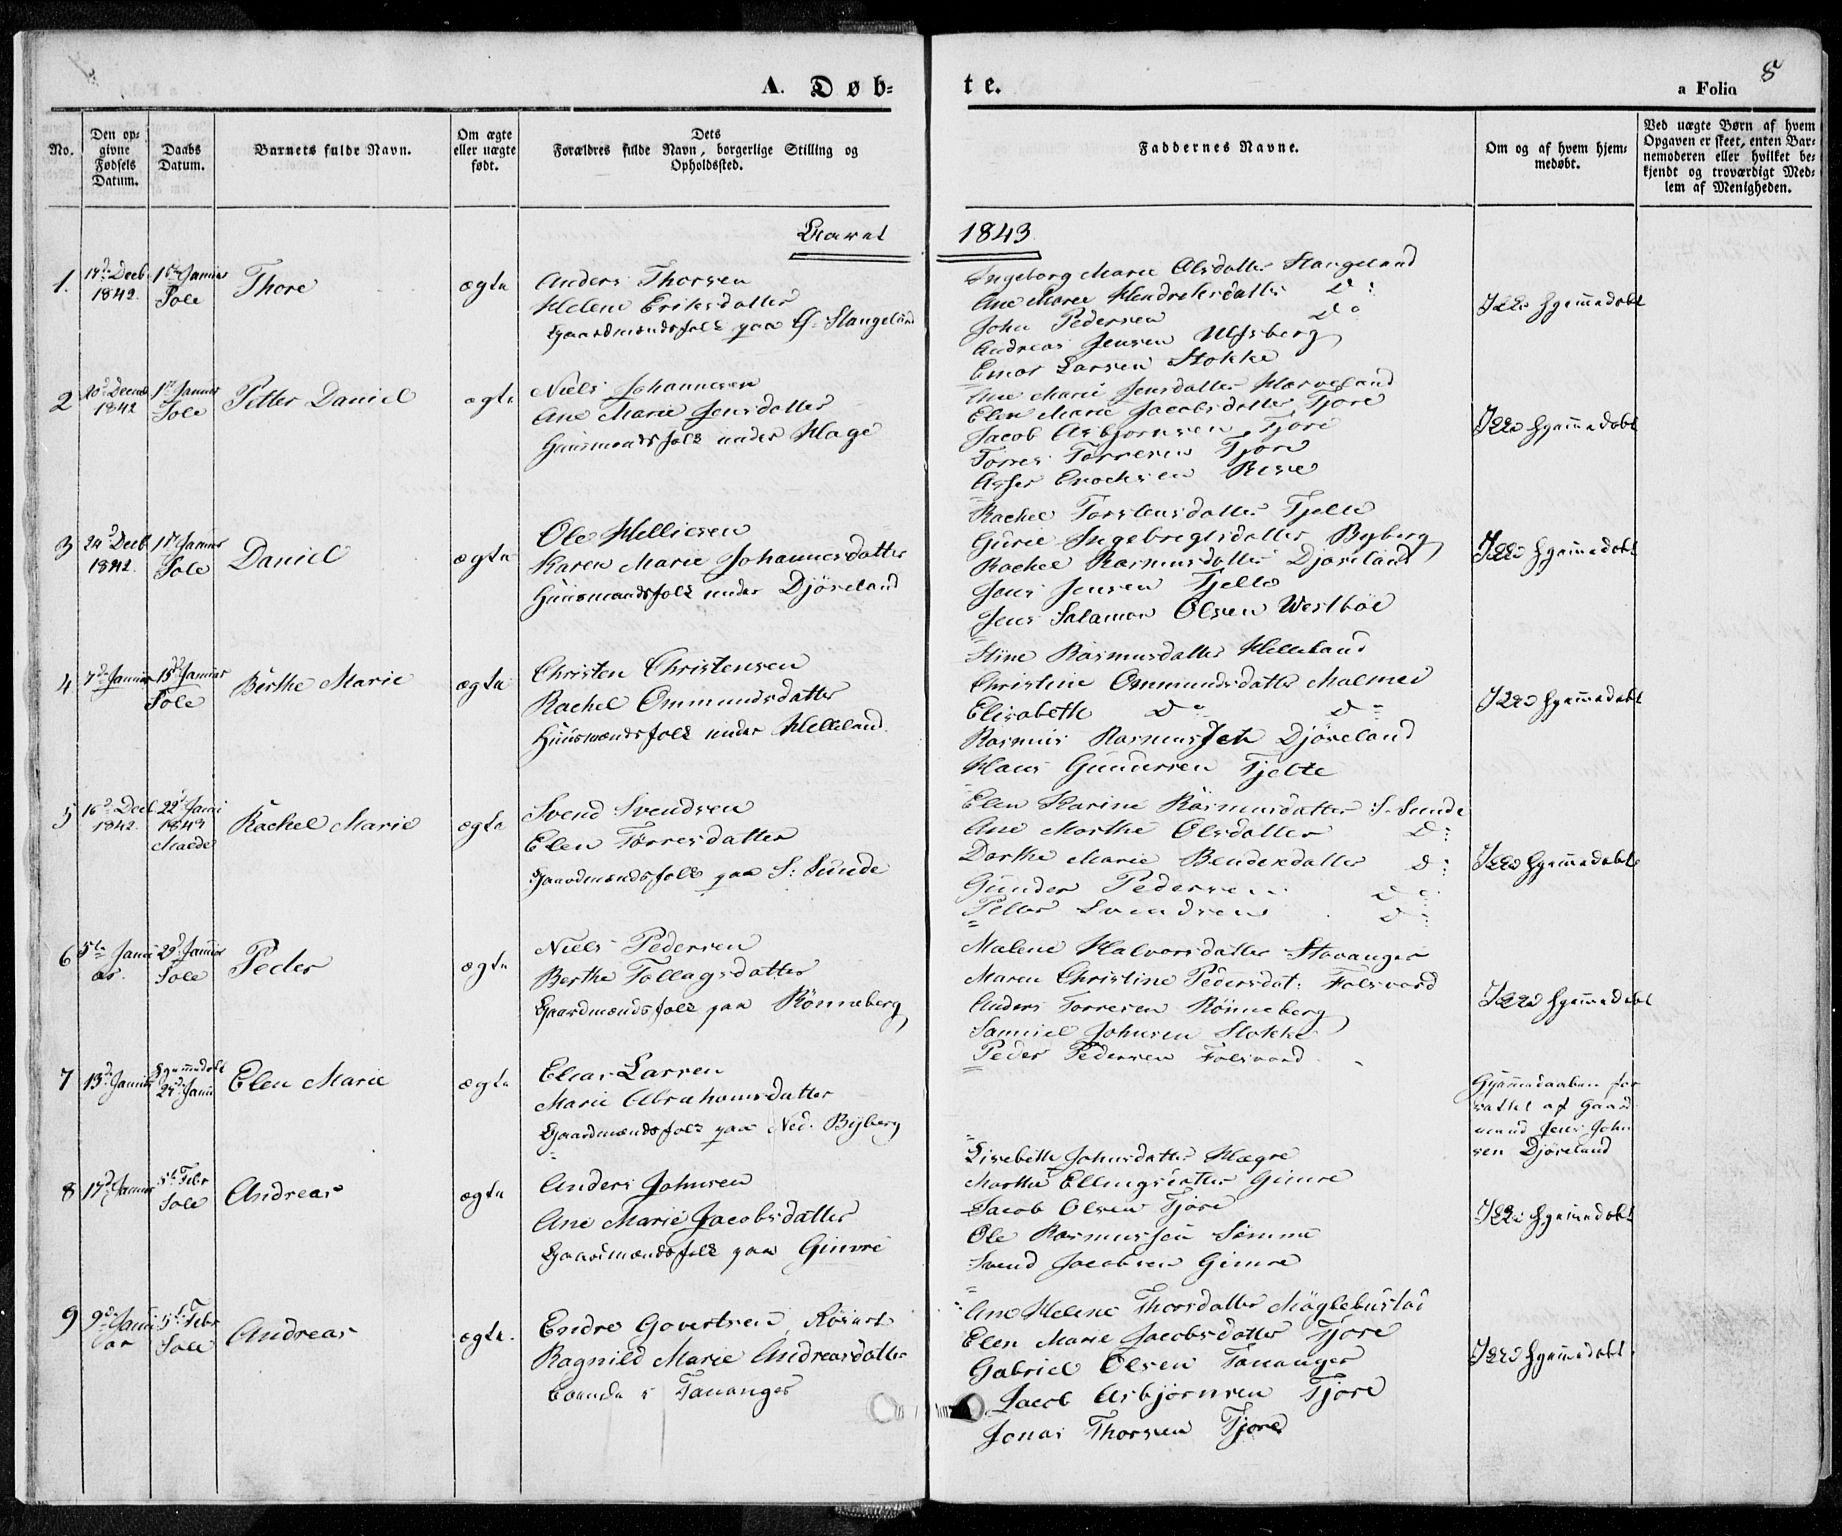 A. Døb-
te.
a Folio
8
No.
Den op-
givne
Fødsels
Datum.
Daabs
Datum.
Barnets fulde Navn.
Om ægte
eller uægte
født.
Dets
Forældres fulde Navn, borgerlige Stilling og
Opholdssted.
Faddernes Navne.
Om og af hvem hjem-
medøbt.
Ved uægte Børn af hvem
Opgaven er skeet, enten Bar-
nemoderen eller hvilket be-
kjendt og troværdigt Med-
lem af Menigheden.
Aaret
1843
1.
17d Decb.
1842.
1ste Januar
Sole
Thore
ægte
Anders Thorsen
Helene Eriksdatter
Gaardmandsfolk paa Ø. Stangeland
Ingeborg Marie Olsdatter Stangeland
Ane Marie Hendriksdatter Do
John Pedersen Do
Andreas Jensen Ulfsberg
Einar Larsen Stokke
Ikke hjemmedøbt
2
20d Decemb
1842
1st Januar
Sole
Petter Daniel
ægte
Niels Johannesen
Ane Marie Jensdatter
Huusmandsfolk under Hage
Ane Marie Jensdatter Harveland
Elen Marie Jacobsdatter Tjore
Jacob Asbjørnsen Tjore
Tørres Tørresen Tjore
Asser Enochsen Risse
Ikke hjemmedøbt
3
24d Decb
1842.
1st Januar
Sole
Daniel
ægte
Ole Helliesen
Karen Marie Johannesdatter
Huusmandsfolk under Djøseland
Rachel Torstensdatter Tjelte
Gurie Ingebregtsdatter Byberg
Rachel Rasmusdatter Djøseland
Jens Jensen Tjelte
Jens Salamon Olsen Westbøe
Ikke hjemmedøbt
4
7d Januar
15d Januar
Sole
Berthe Marie
ægte
Christen Christensen
Rachel Ommundsdatter
Huusmandsfolk under Helleland.
Stine Rasmusdatter Helleland
Christine Ommundsdatter Malmei
Elisabeth Do Do
Rasmus Rasmussen Djøseland
Hans Gundersen Tjelte
Ikke hjemmedøbt
5
16d Decb
1842.
22d Janu
1843
Malde
Rachel Marie
ægte
Svend Svendsen
Elen Tørresdatter
Gaardmandsfolk paa S: Sunde
Elen Karine Rasmusdatter S. Sunde
Ane Marthe Olsdatter Do
Dorthe Marie Bendixdatter do
Gunder Pedersen Do
Peter Svendsen Do
Ikke hjemmedøbt
6
5te Janu
ar.
29d Januar
Sole
Peder
ægte
Niels Pedersen
Berthe Tollagsdatter
Gaardmandsfolk paa Rønneberg
Malene Halvorsdatter Stavanger
Maren Christine Pedersdat: Folsvord
Anders Torresen Rønneberg
Samuel Johnsen Stokke
Peder Pedersen Folsvord.
Ikke hjemmedøbt
7
13d Januar
Hjemmedøbt
24d Janu
Elen Marie
ægte
Elias Larsen
Marie Abrahamsdatter
Gaardmandsfolk paa Ned. Byberg
Hjemmedaaben for
rettet af Gaard
mand Jens John
sen Djøseland
8
17d Januar
5te Febr
Sole
Andreas
ægte
Anders Johnsen
Ane Marie Jacobsdatter
Gaardmandsfolk paa Gimre
Lisebeth Johnsdatter Hægre
Marthe Ellingsdatter Gimre
Jacob Olsen Tjore
Ole Rasmussen Sømme
Svend Jacobsen Gimre
Ikke hjemmedøbt
9
9d Janu
ar
5te Febr
Sole
Andreas
ægte.
Endre Govertsen
Ragnild Marie Andreasdatter
Boende i Tananger
Ane Helene Thorsdatter Møglebustad
Elen Marie Jacobsdatter Tjore
Gabriel Olsen Tananger
Jacob Asbjørnsen Tjore
Jonas Thorsen Tjore
Ikke hjemmedøbt.